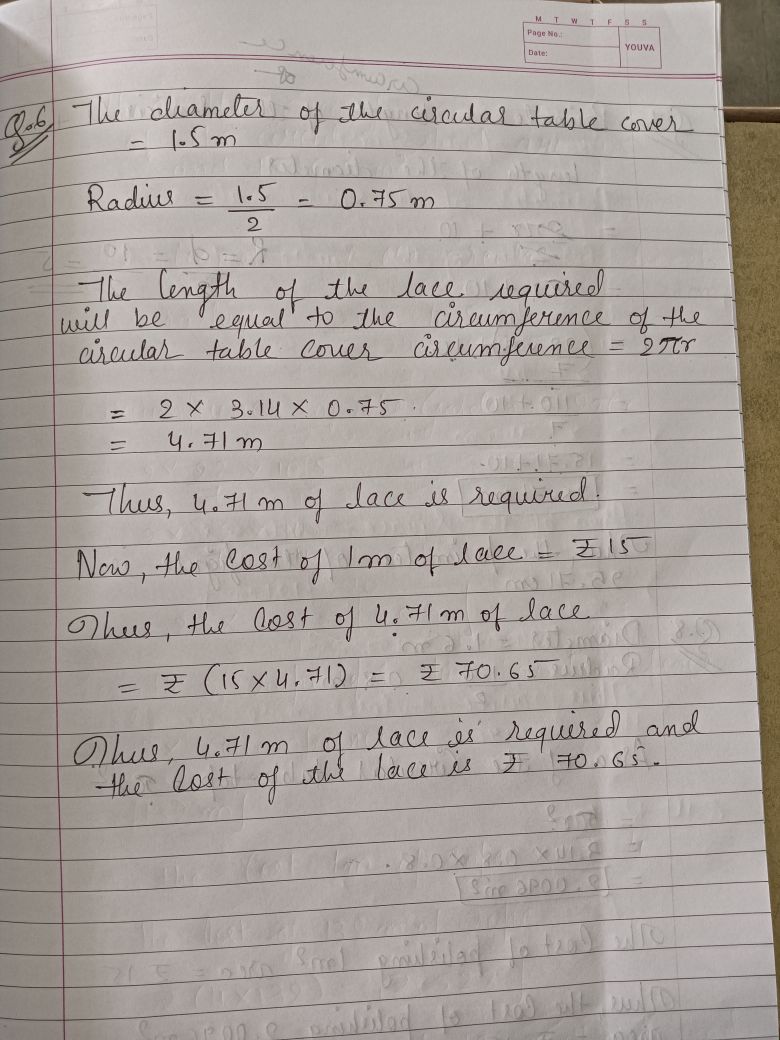 M T W T F S S
Page No.:
Date:
YOUVA
Q.6 The diameter of the circular table cover
= 1.5 m
Radius = 1.5/2 = 0.75 m
The length of the lace required
will be equal to the circumference of the
circular table cover circumference = 2πr
= 2 × 3.14 × 0.75
= 4.71 m
Thus, 4.71 m of lace is required.
Now, the Cost of 1m of lace = ₹ 15
Thus, the Cost of 4.71 m of lace
= ₹ (15 × 4.71) = ₹ 70.65
Thus, 4.71 m of lace is required and
the Cost of the lace is ₹ 70.65.